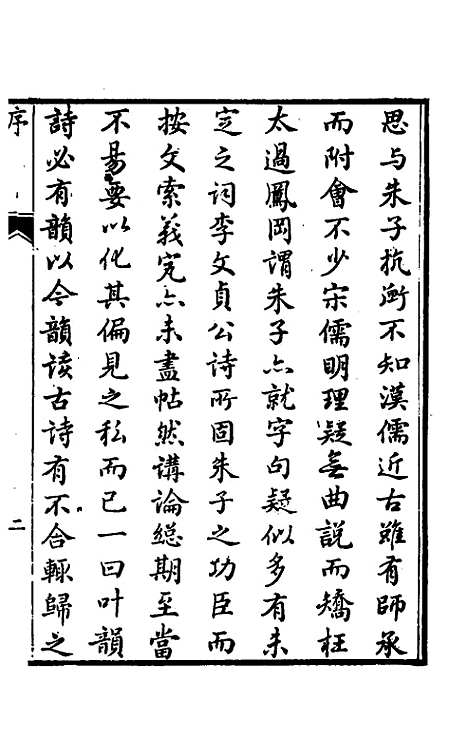 思与朱子抗衡不知漢儒近古雖有師承
而附會不少宋儒明理疑無曲說而矯枉
太過鳳岡謂朱子亦就字句疑似多有未
定之詞李文貞公詩所固朱子之功臣而
按文索義究亦未盡帖然講論總期至當
不易要以化其偏見之私而已一曰叶韻
詩必有韻以今韻读古诗有不合輒歸之
序
二